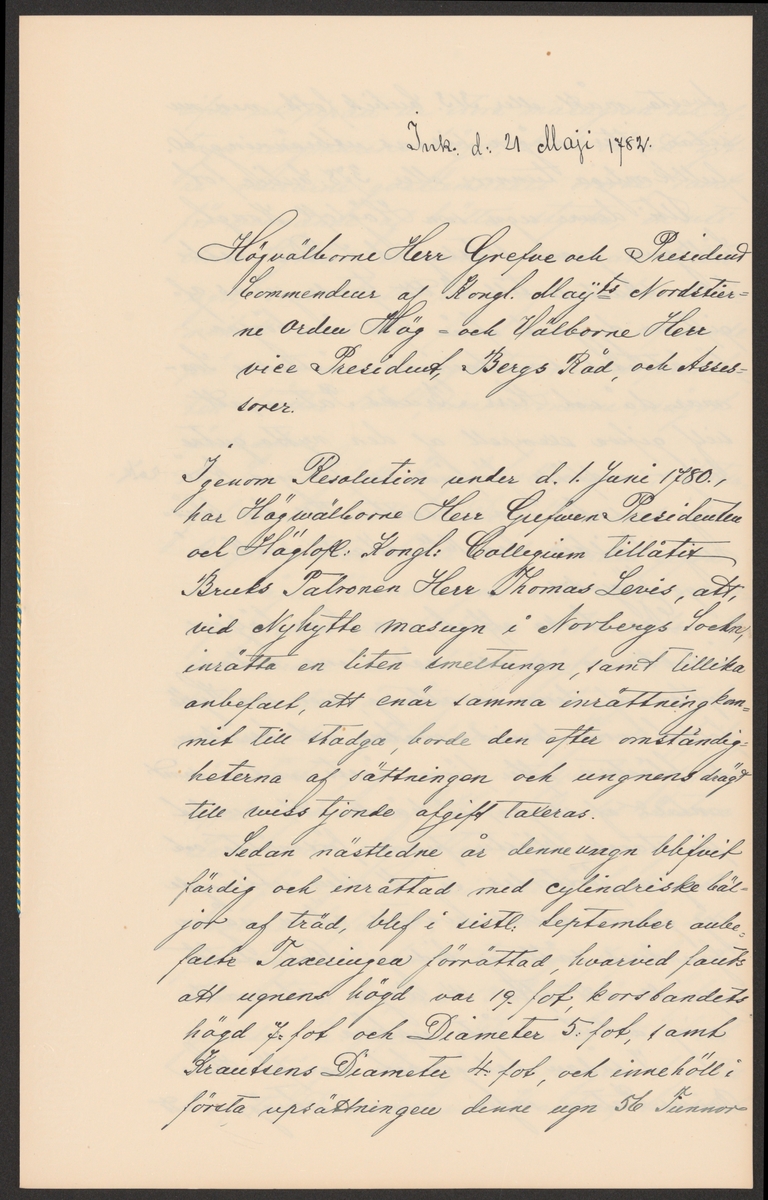 Ink. d: 21 Maji 1782.
Högvälborne Herr Grefve och President
Commendeur af Kongl. Maÿts Nordstier=
ne Orden Hög= och Wälborne Herr
vice President, Bergs Råd, och Asses=
sorer.
Igenom Resolution under d. 1. Juni 1780.,
har Högwälborne Herr Grefwen Presidenten
och Höglofl: Kongl: Collegium tillåtit
Bruks Patronen Herr Thomas Levis, att,
vid Nyhytte masugn i Norbergs Sockn,
inrätta en liten smeltungn, samt tillika
anbefalt, att enär samma inrättning kom=
mit till stadga, borde den efter omständig=
heterna af sättningen och ungnens drägt
till wiss tjonde afgift taxeras.
Sedan nästledne år denne ungn blifvit
färdig och inrättad med cylindriske bäl=
jor af träd, blef i sistl: September anbe=
falte Taxeringen förrättad, hvarvid fants
att ugnens högd var 19. fot, korsbandets
högd 7. fot och Diameter 5. fot, samt
Krantsens Diameter 4. fot, och innehöll i
första upsättningen denne ugn 56 Tunnor=